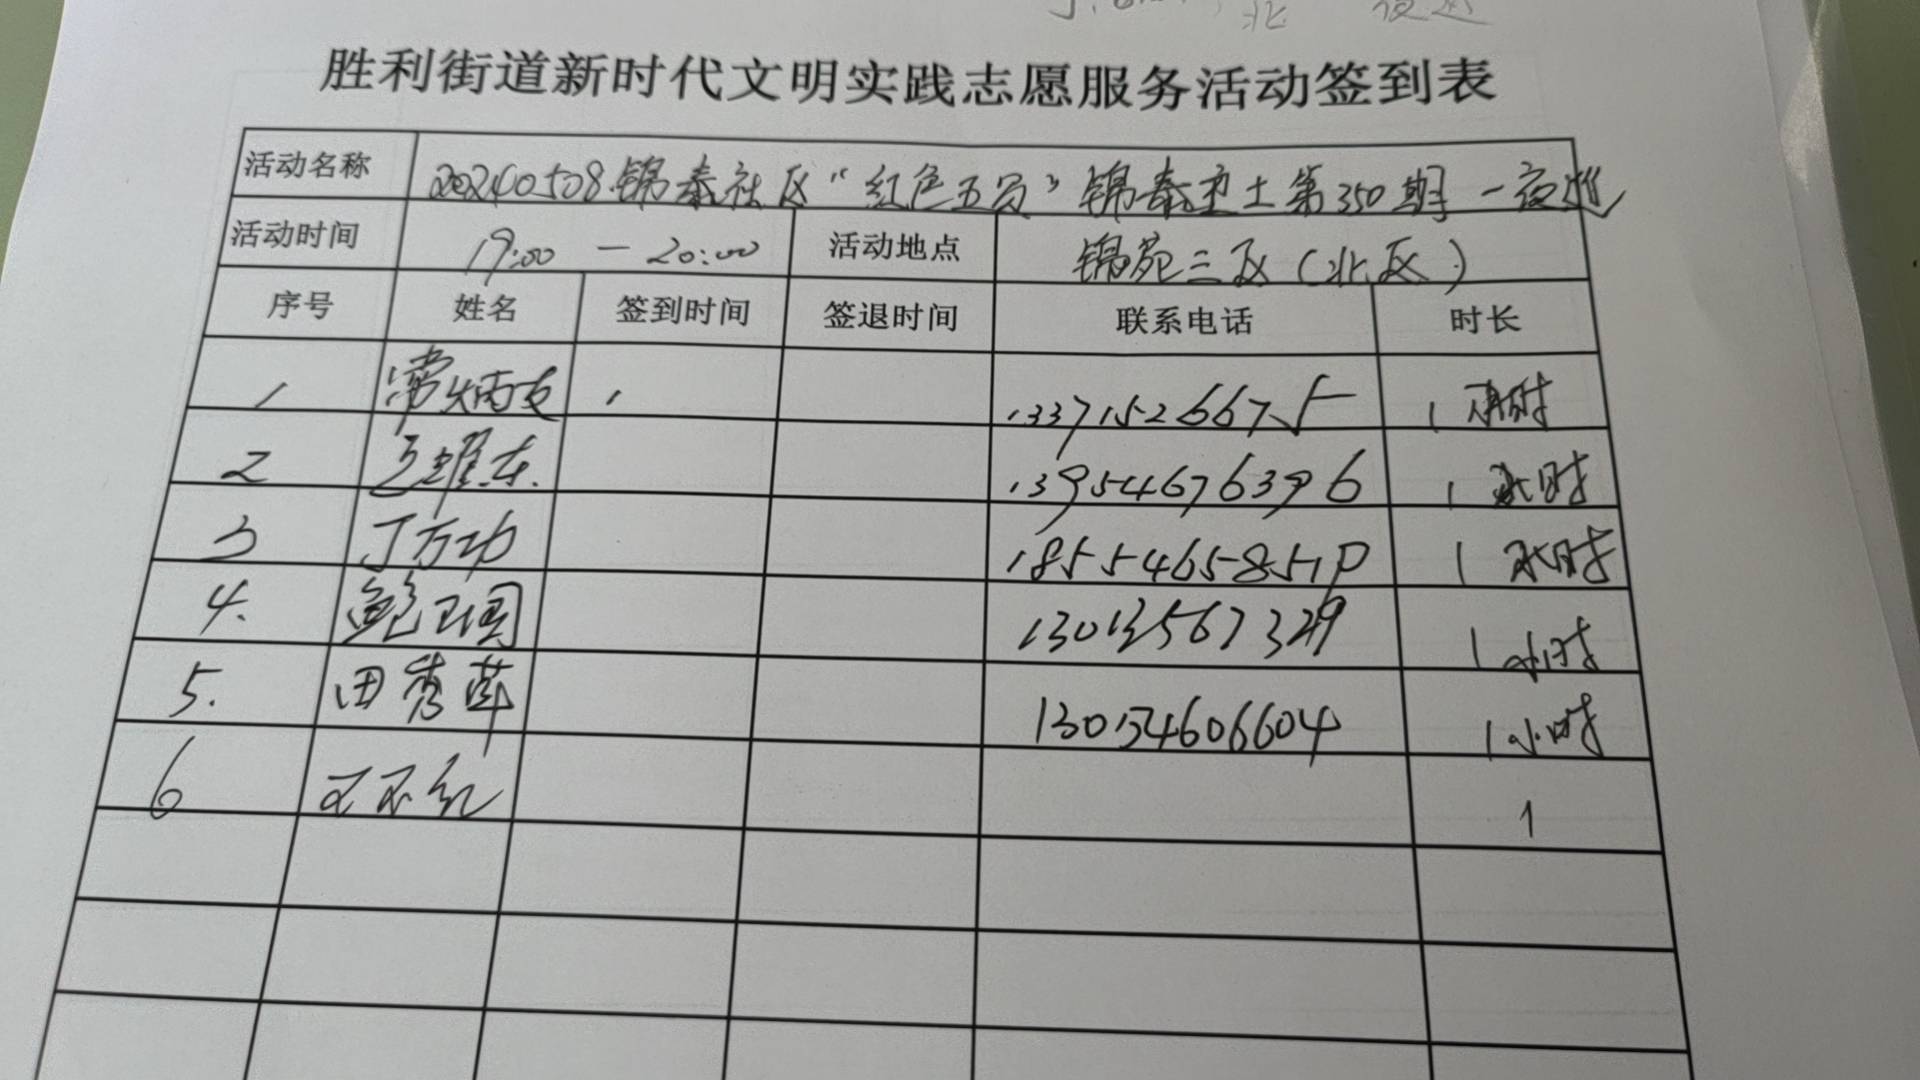 胜利街道新时代文明实践志愿服务活动签到表
活动名称 20240508.锦泰社区“红色五员”锦泰卫士第350期一夜巡
活动时间 19:00 — 20:00 活动地点 锦苑三区(北区)
序号 姓名 签到时间 签退时间 联系电话 时长
1 常炳友 13371526675 1小时
2 王维东. 13954676396 1小时
3 丁万功 1 小时
4. 鲍卫国 1小时
5. 田秀萍 13054606604 1小时
6 1